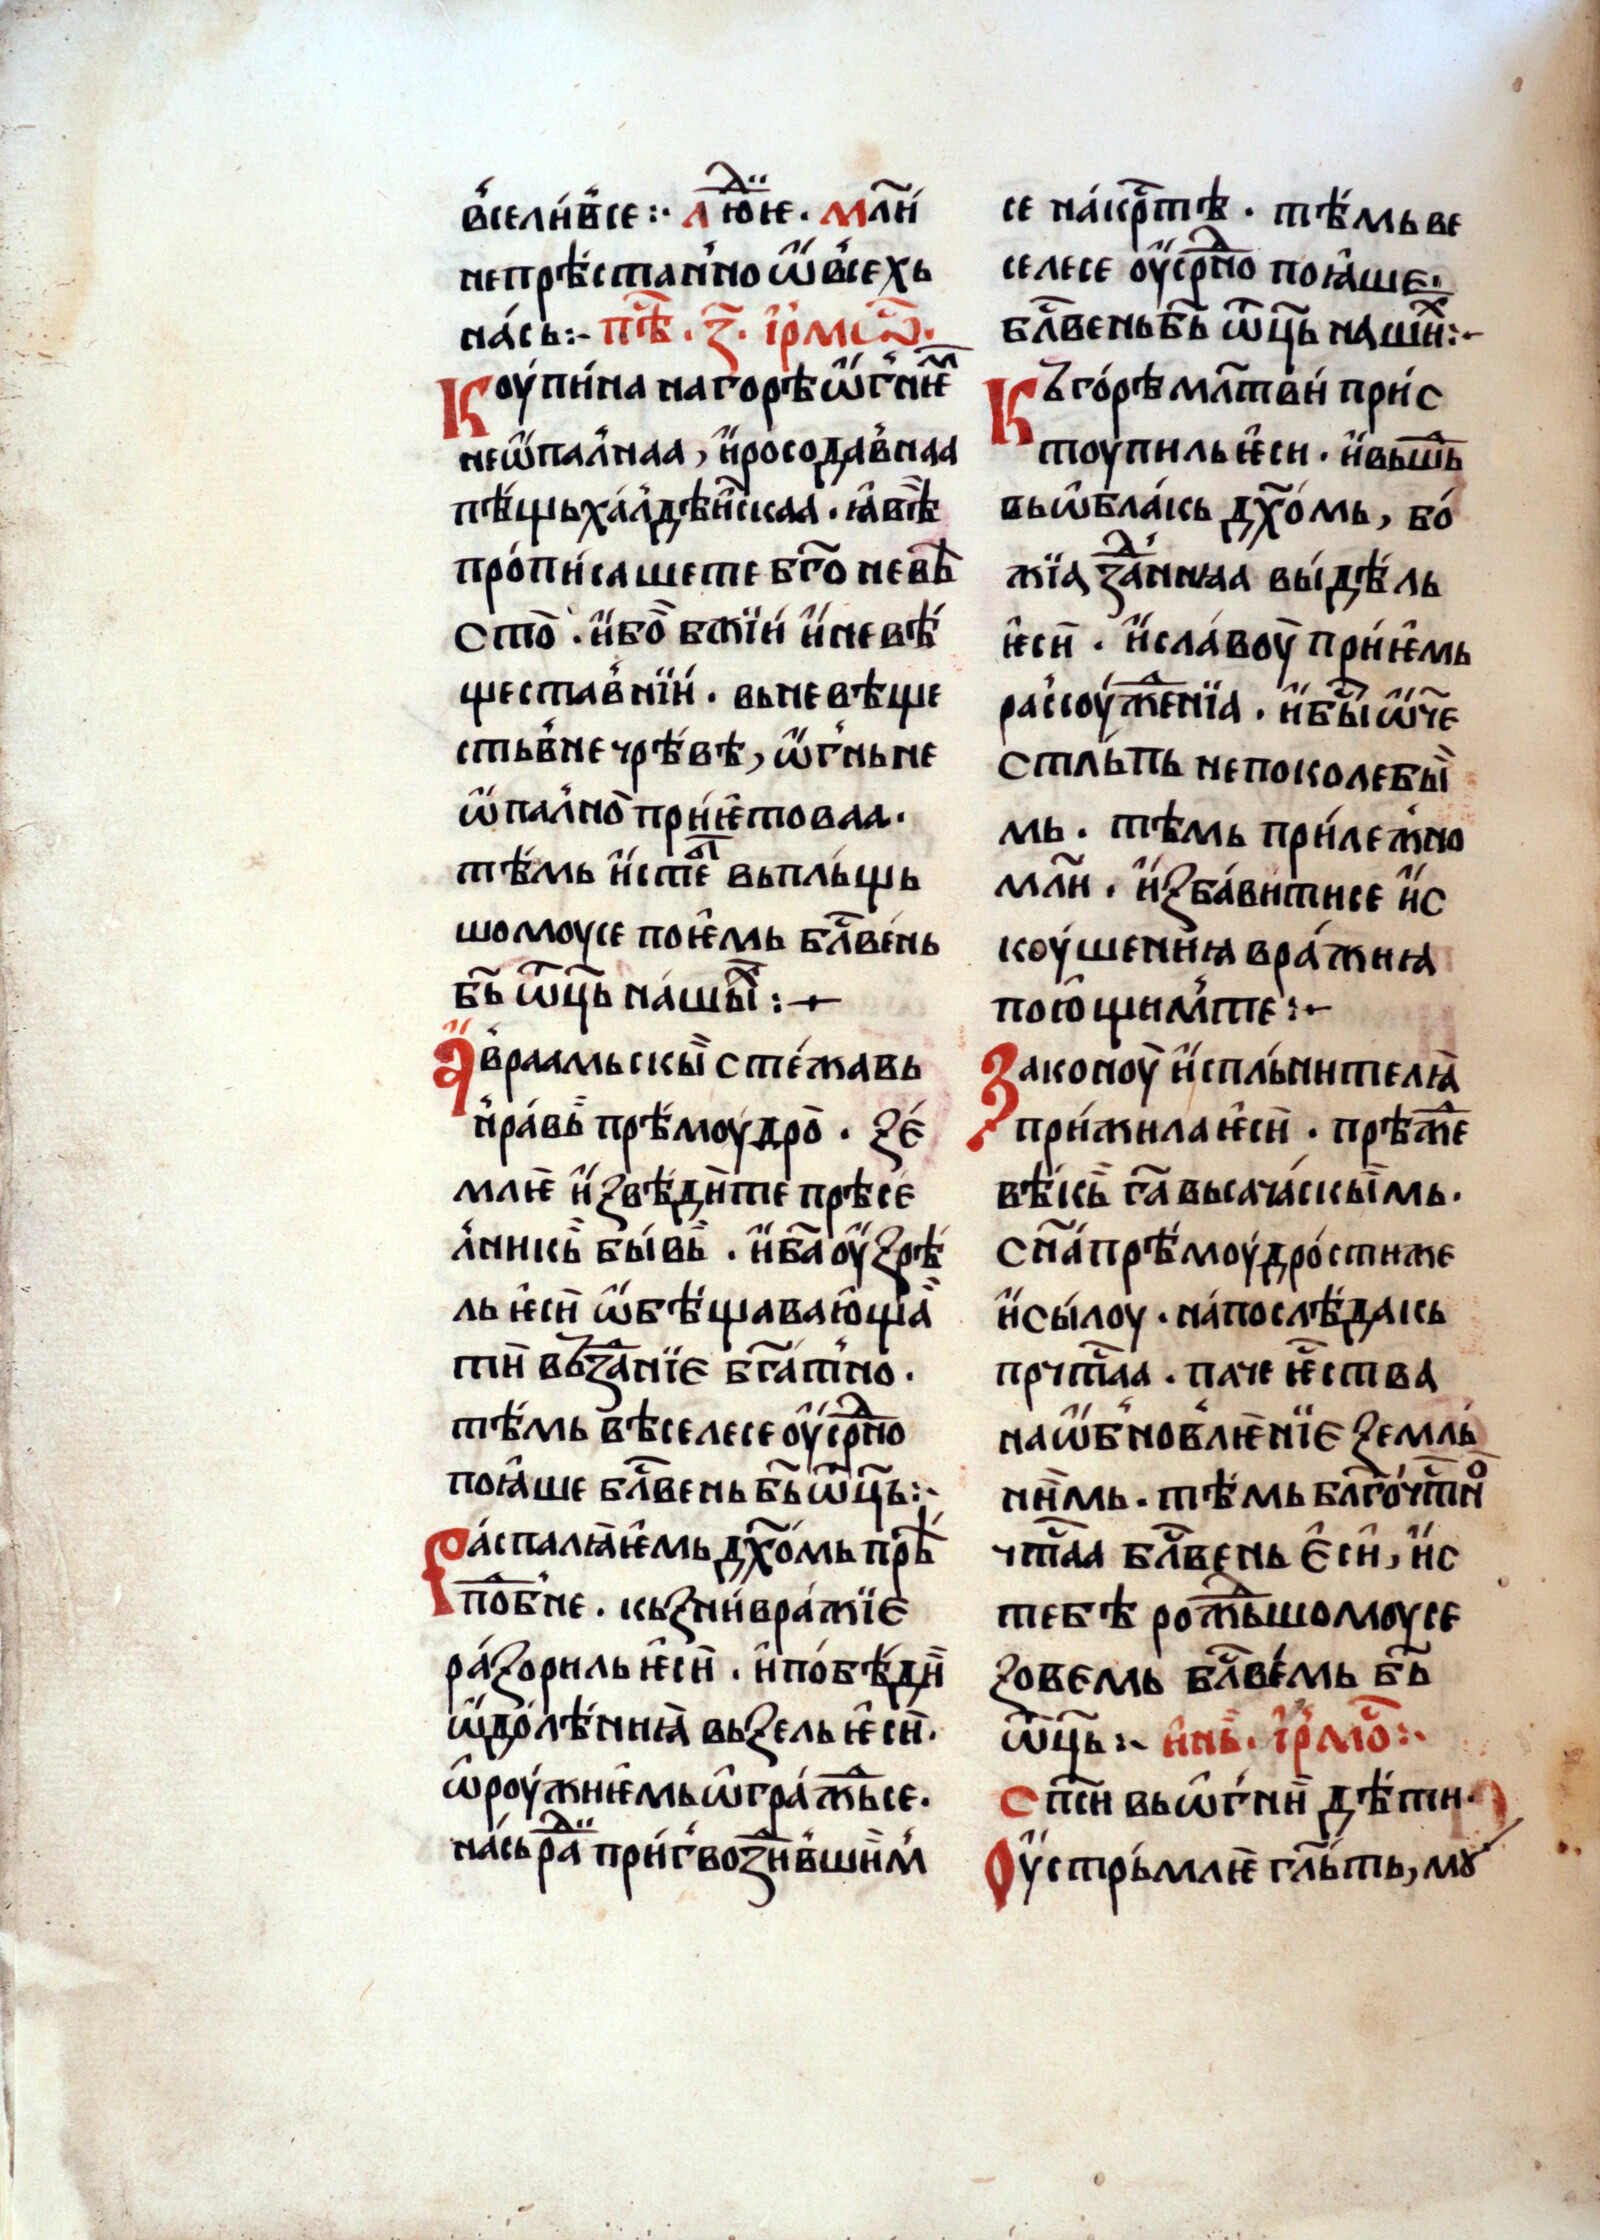 в̾селив̾се :· л ю҆к . мл҃и
непрѣстан̾но ѿв̾сехь
нась :~ пѣ҃ . з҃ . їрмѡ҃с .
Коупина нагорѣ ѿг̾нѥм
неѡпал̾наа , и҆росодав̾наа
пѣщь хал̾дѣискаа . ꙗ҆вѣ
прописашете бг҃о невѣ
сто . и҆бо бж҃їи и҆невѣ
щестав̾нїи . вьневѣще
ств̾не чрѣвѣ , ѡ҆г̾ньне
ѡ҆пал̾но приѥтоваа .
тѣмь и҆стеб вьпльщь
шомоусе поѥмь бл҃вень
бь҃ ѿц҃ь нашых :~
Авраамьскы стежавь
н̾равь прѣмоудро . зе
млѥ изведите прѣсе
л̾никь бывь . и҆ба҃ оу҆зрѣ
ль ѥси ѡ҆бѣщавающа
ти вьзд҃анїе бг҃ат̾но .
тѣмь вѣселесе оу҆срд҃но
поꙗше бл҃вень бь҃ ѿц҃ь :~
Распалꙗѥмь дх҃омь прѣ
поб҃не . кьзнивражїе
разориль ѥси . и҆побѣди
ѡ҆долѣнниꙗ вьзель ѥси .
ѡ҆роужиѥмь ѡ҆гражд҃ьсе .
нась рад҃ приг̾воздив̾шим̾
се накрс҃тѣ . тѣмь ве
селесе оу҆срд҃но поꙗше .
бл҃веньбь҃ ѿц҃ь наших :~
Кьгорѣ мл҃тви прис
тоупиль ѥси . и҆вьшд҃ь
вьѡ҆блакь дх҃омь , бо
жїа зд҃анниаа выдѣль
ѥси . и҆славоу приѥмь
рассоужд҃енїа . и҆бы҃ ѿч҃е
стльпь непоколебы
мь . тѣмь прилежно
мл҃и . и҆збавитисе и҆с
коушенниꙗ вражиꙗ
поющим̾те :~
Законоу и҆спльнителꙗ
прижила ѥси . прѣжд҃е
вѣкь гс҃а вьсачаскымь .
сн҃а прѣмоудростиже
и҆сылоу . напослѣдакь
прчт҃аа . паче ѥс҃тва
наѡ҆б̾нов̾лѥнїе земль
нимь . тѣмь блг҃очт҃но
чт҃аа бл҃вень ѥси , и҆с
тебѣ рожд҃ьшомоусе
зовемь бл҃вемь бь҃
ѿц҃ь :~ и҆нь . їрмо҃с :~
Сп҃си вьѡ҆г̾ни дѣти .
Оустрьмлѥ гль҃ть , мꙋ